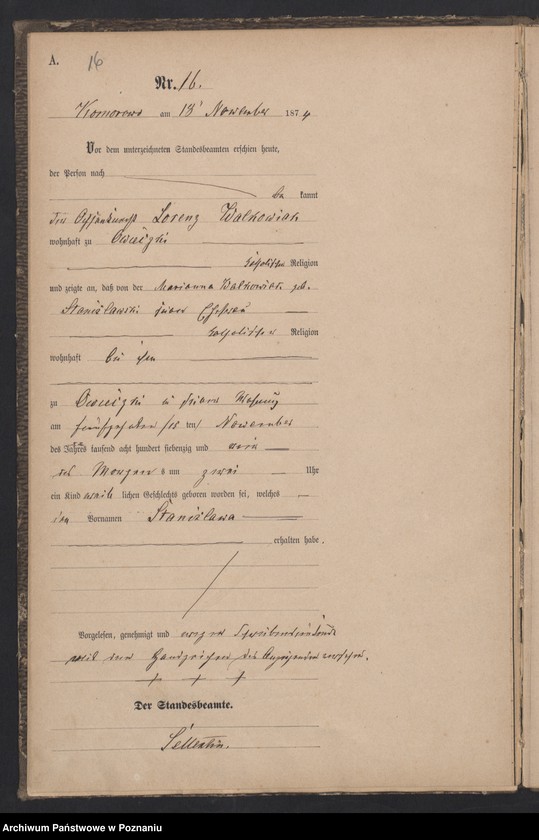 A. 16
Nr. 16.
Komorowo am 18 November 1874
Vor dem unterzeichneten Standesbeamten erschien heute,
der Person nach
be kannt
der Lorenz Walkowiak
wohnhaft zu Owieczki
katholischer Religion
und zeigte an, daß von der Marianna Walkowiak geb.
Stanislawski seiner Ehefrau
katholischer Religion
wohnhaft bei ihm
zu Owieczki in seiner Wohnung
am ten November
des Jahres tausend acht hundert siebenzig und vier
des Morgens um zwei Uhr
ein Kind weib lichen Geschlechts geboren worden sei, welches
den Vornamen Stanislawa
erhalten habe.
Vorgelesen, genehmigt und wegen
mit den Handzeichen des versehen.
+ + +
Der Standesbeamte.
Archiwum Państwowe w Poznaniu